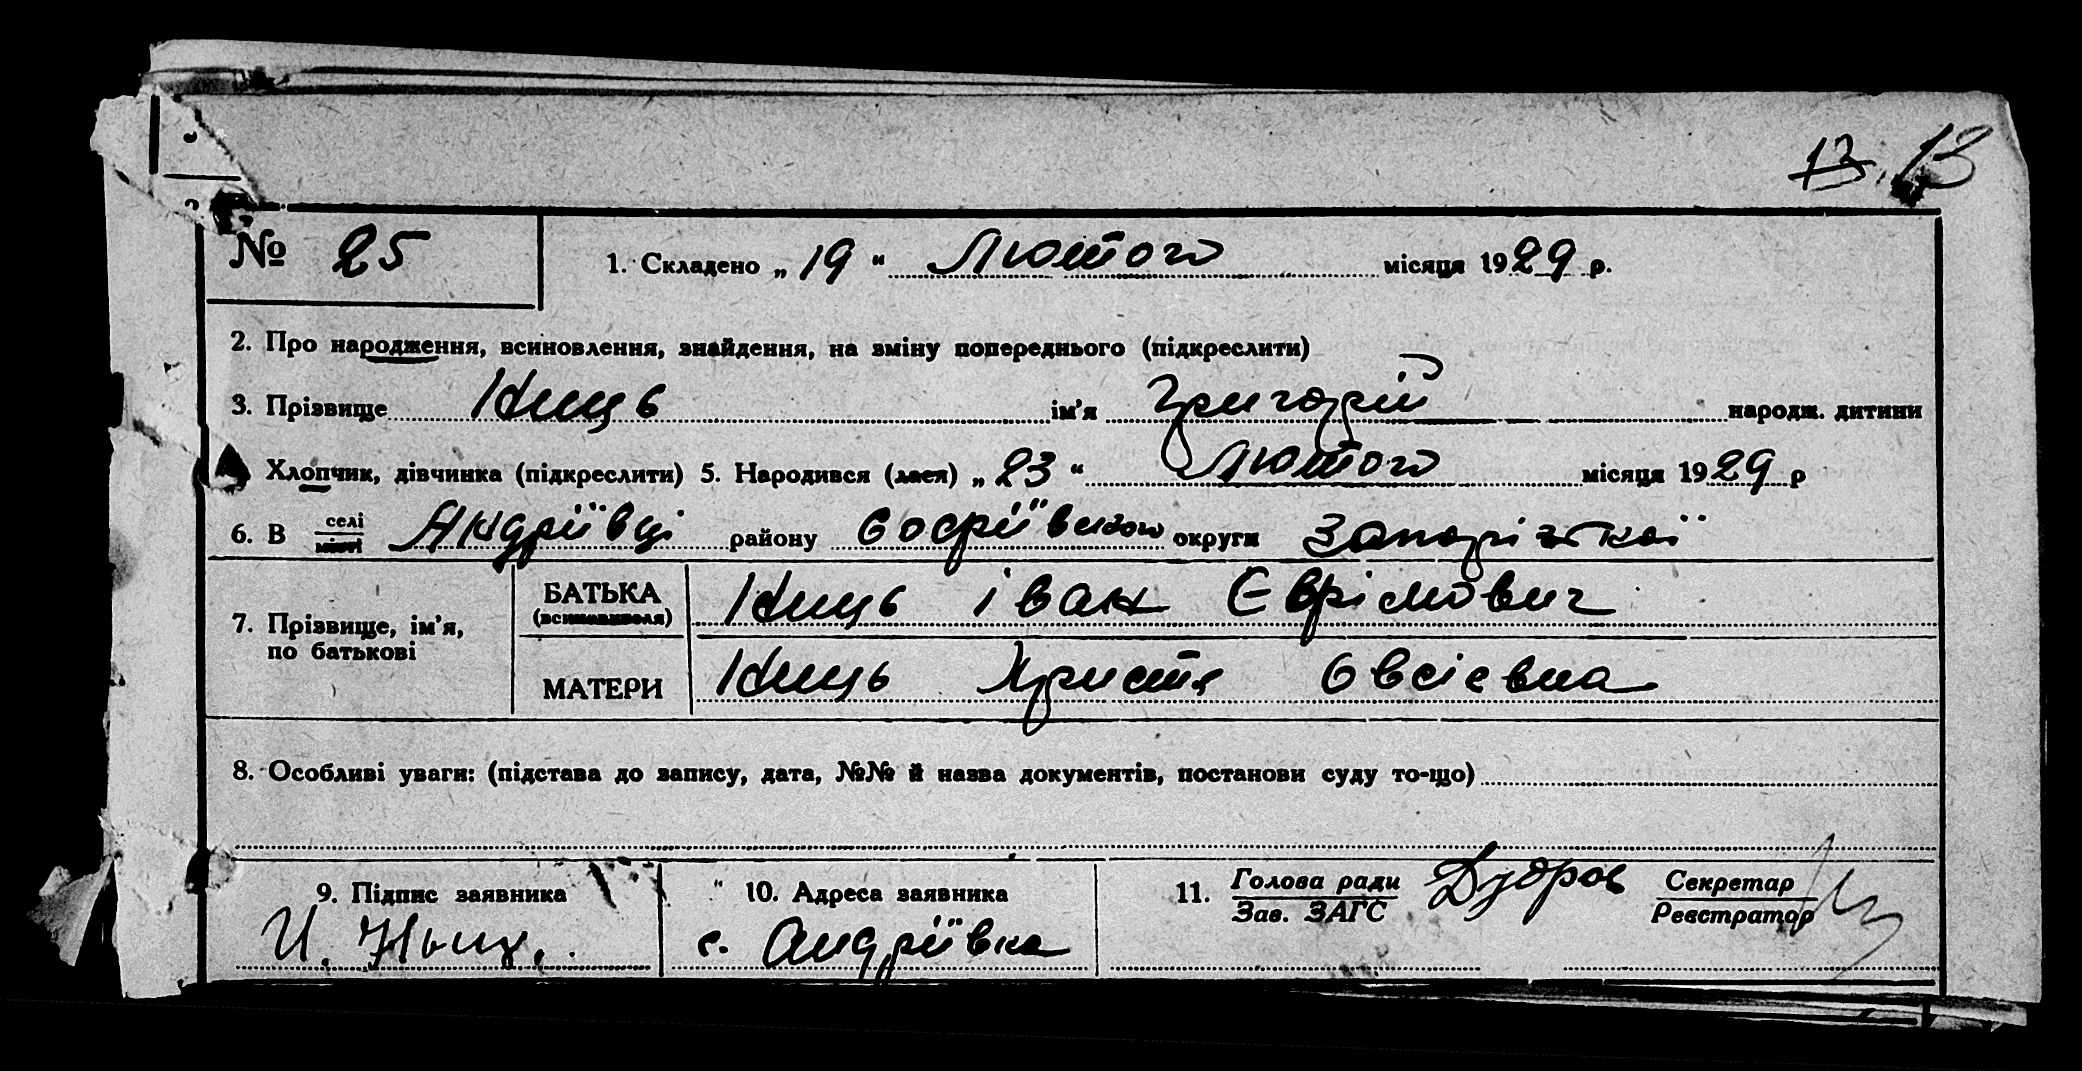 13. 13
№ 25
1. Складено „ 19 “ Лютого місяця 1929 р.
2. Про народження, всиновлення, знайдення, на зміну попереднього (підкреслити)
3. Прізвище Ниць ім’я Григорій народж. дитини
Хлопчик, дівчинка (підкреслити) 5. Народився (лася) „ 23 “ Лютого місяця 1929 р
6. В селі місті Андріївці району округи Запорізької
7. Прізвище, ім’я, по батькові
БАТЬКА (всиновителя) Ниць Іван
МАТЕРИ Ниць Христя Овсієвна
8. Особливі уваги: (підстава до запису, дата, №№ й назва документів, постанови суду то-що)
9. Підпис заявника
И. Ныць.
10. Адреса заявника
с. Андріївка
11. Голова ради Зав. ЗАГС
Секретар Реєстратор